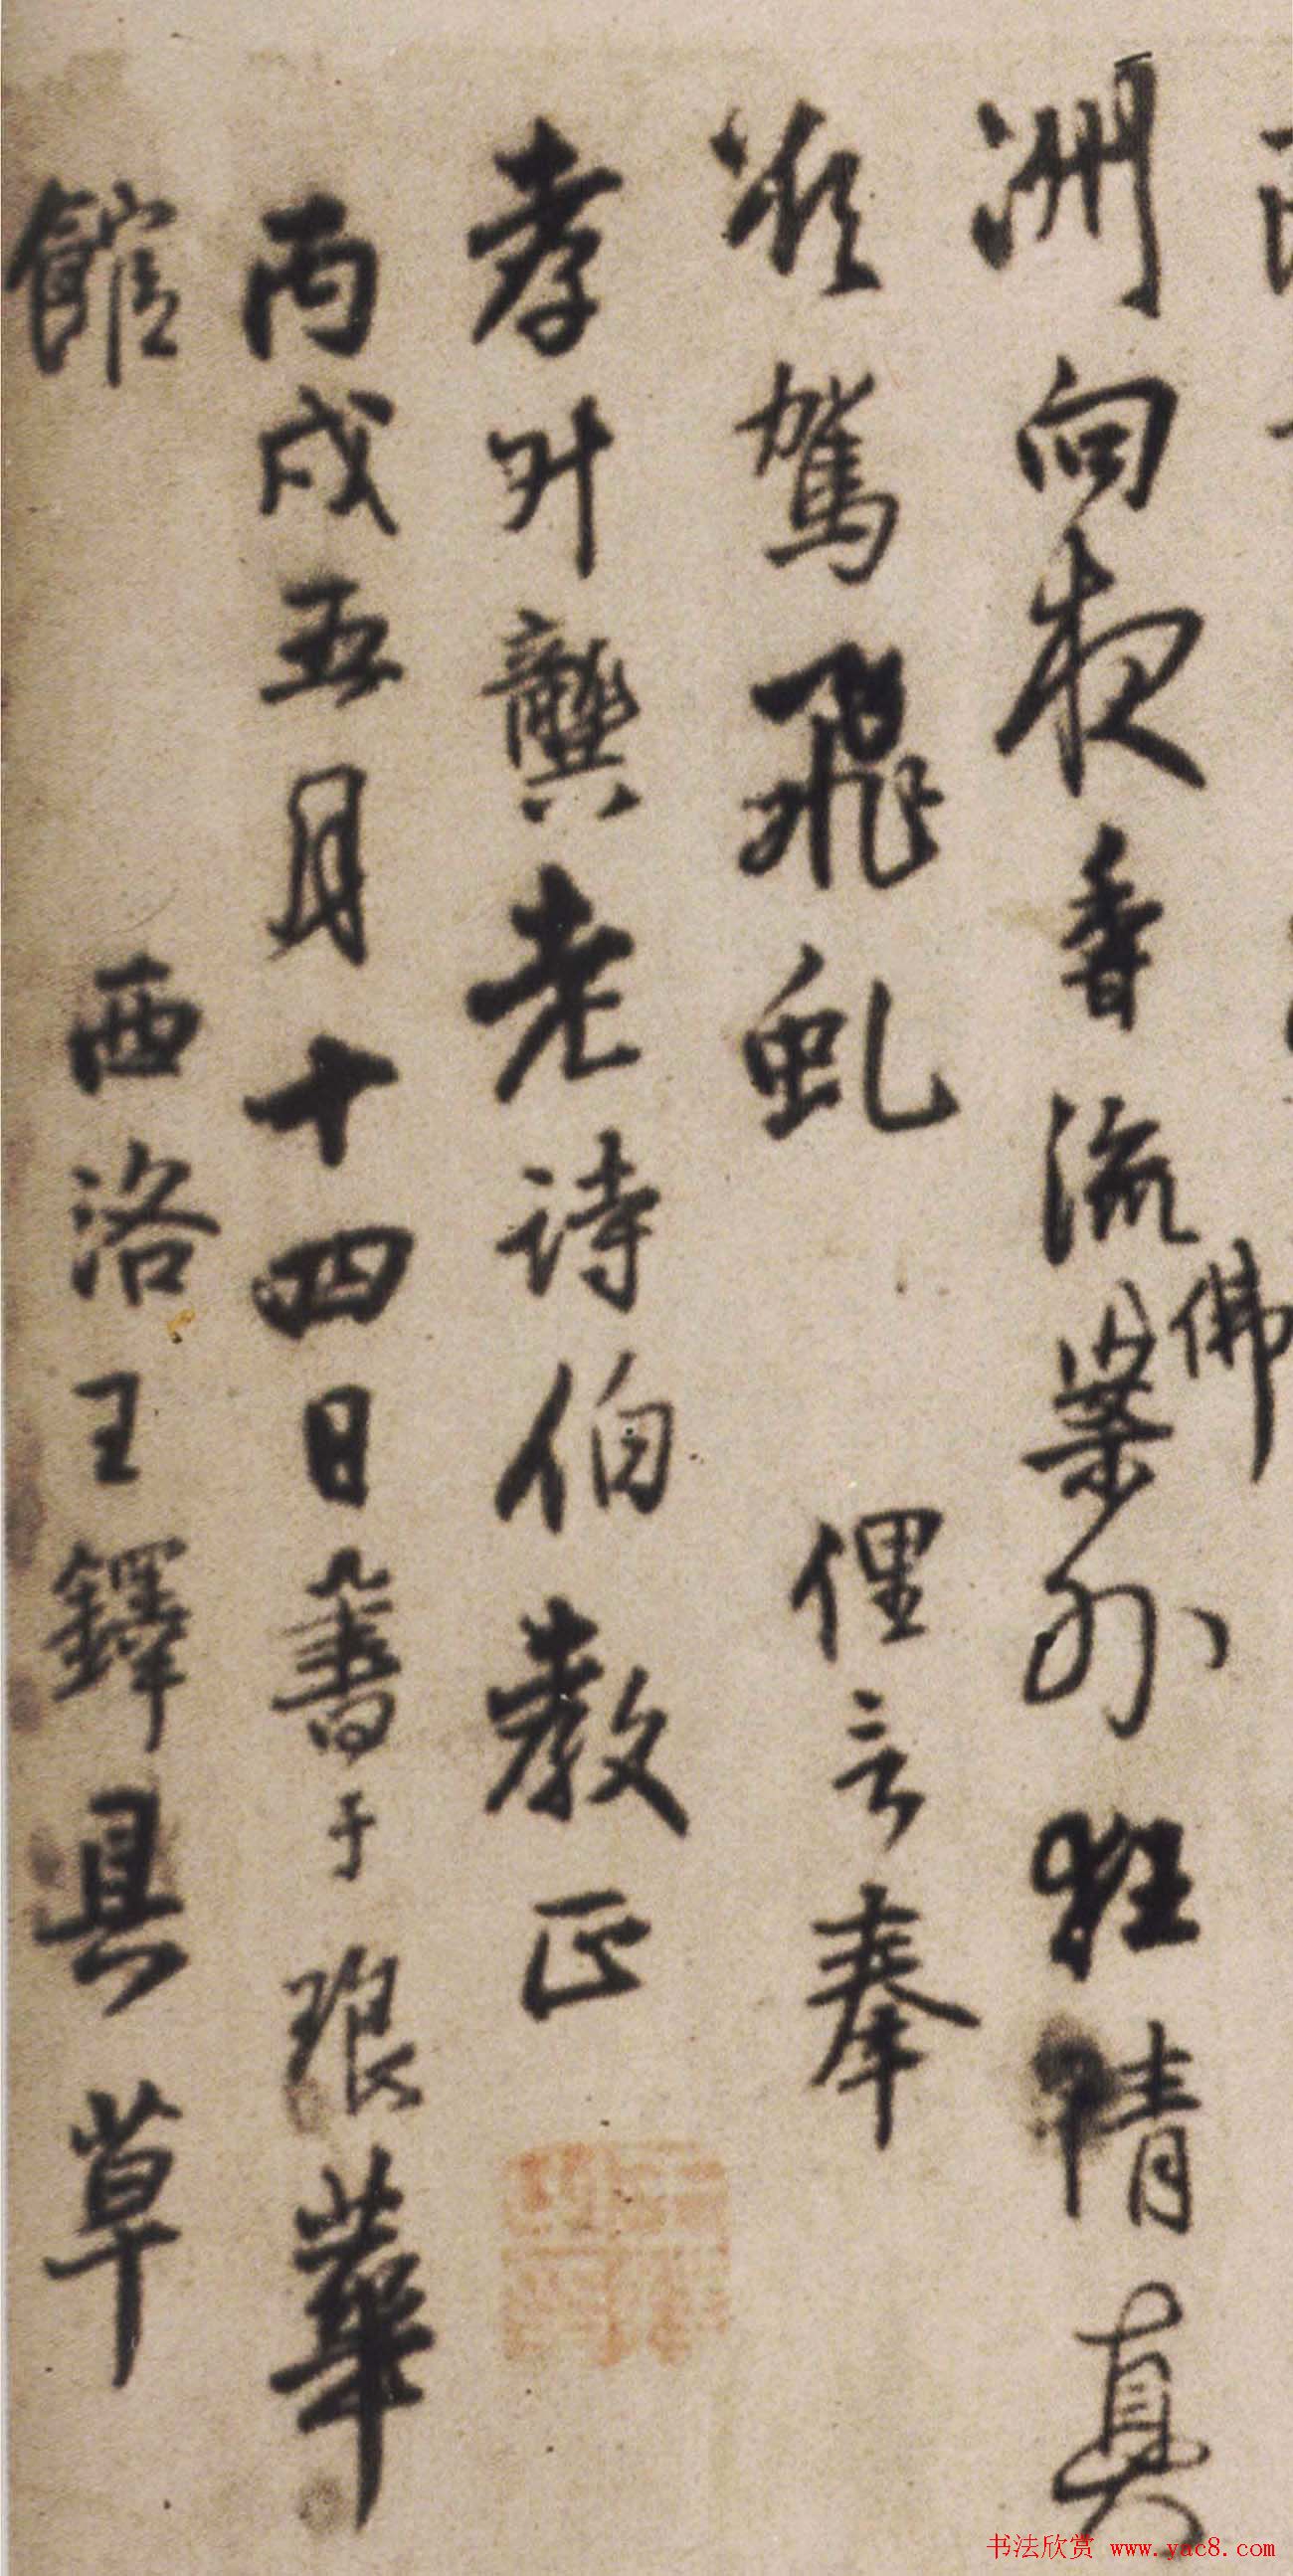 洲向夜香流梁外狂情真
佛
欲駕飛虬
俚言奉
孝升龔老詩伯教正
丙戌五月十四日書于琅華
館
西洛王鐸具草
书法欣赏 www.yac8.com